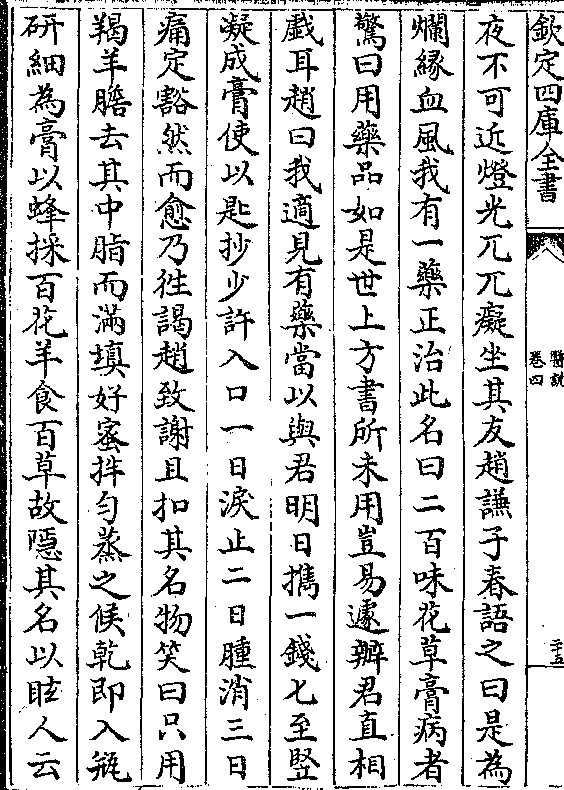 欽定四庫全書
醫說
卷四
二十五
夜不可近燈光兀兀癡坐其友趙謙子春語之曰是為
爛緣血風我有一藥正治此名曰二百味花草膏病者
驚曰用藥品如是世上方書所未用豈易遽辦君直相
戲耳趙曰我適見有藥當以與君明日攜一錢匕至堅
凝成膏使以匙抄少許入口一日淚止二日腫消三日
痛定豁然而愈乃往謁趙致謝且扣其名物笑曰只用
羯羊膽去其中脂而滿填好蜜拌勻蒸之候乾即入瓶
研細為膏以蜂採百花羊食百草故隱其名以眩人云